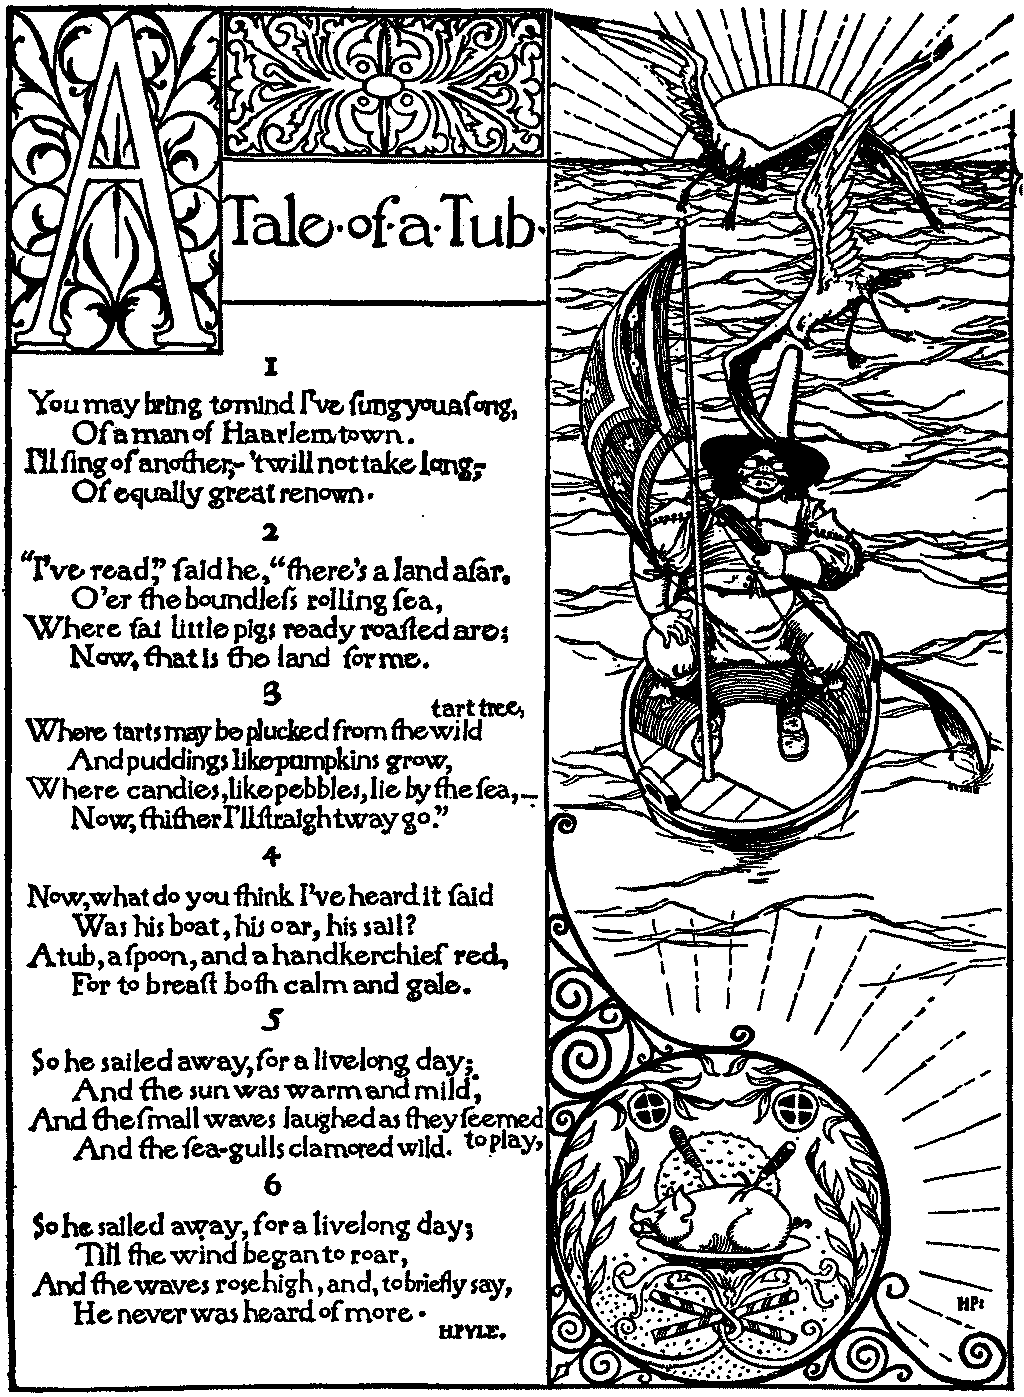 A Tale·of·a·Tub·
1
You may bring to mind I've ſung you a ſong,
Of a man of Haarlem town.
I'll ſing of another,- 'twill not take long,-
Of equally great renown.
2
"I've read," ſaid he, "there's a land afar,
O'er the boundleſs rolling ſea,
Where fat little pigs ready roaſted are;
Now, that is the land for me.
3
Where tarts may be plucked from the wild tart tree,
And puddings like pumpkins grow,
Where candies, like pebbles, lie by the ſea,-
Now, thither I'll ſtraightway go."
4
Now, what do you think I've heard it ſaid
Was his boat, his oar, his sail?
A tub, a ſpoon, and a handkerchief red,
For to breaſt both calm and gale.
5
So he sailed away, for a livelong day;
And the sun was warm and mild,
And the ſmall waves laughed as they ſeemed to play,
And the ſea-gulls clamored wild.
6
So he sailed away, for a livelong day;
Till the wind began to roar,
And the waves rose high, and, to briefly say,
He never was heard of more.
H.PYLE.
HP: